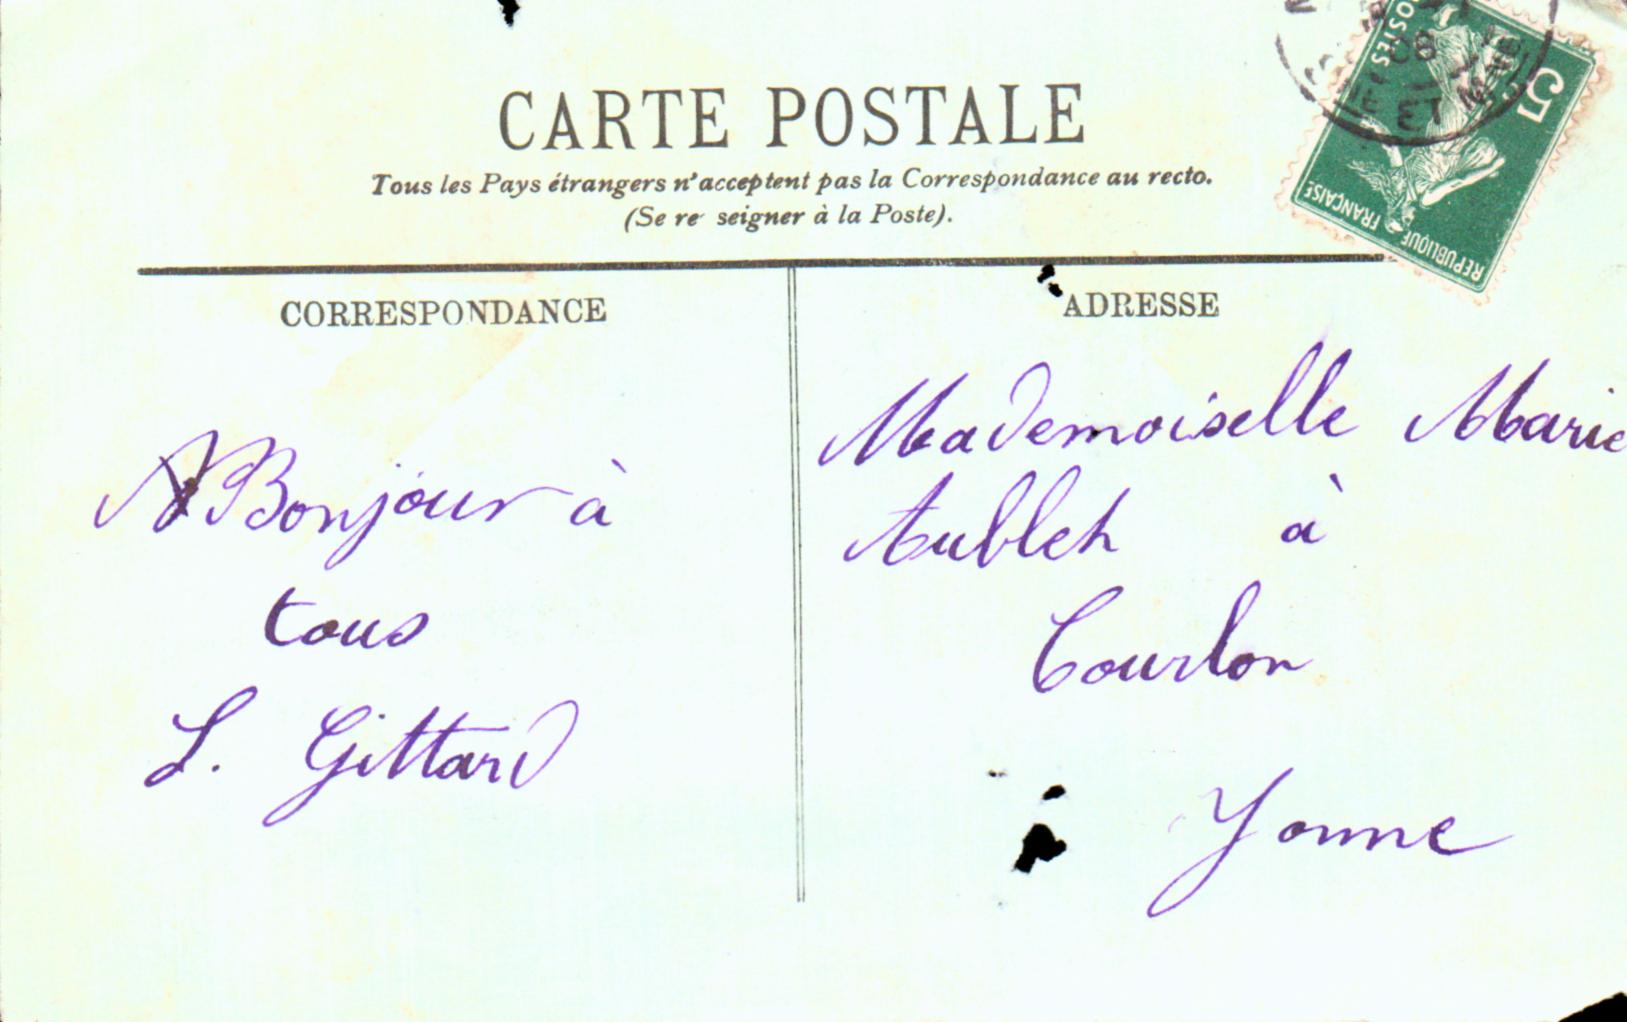 CARTE POSTALE
Tous les Pays étrangers n'acceptent pas la Correspondance au recto.
(Se re seigner à la Poste).
CORRESPONDANCE
Bonjour à
tous
L. Gittard
ADRESSE
Mademoiselle Marie
à
Courlon
Yonne
POSTES
08
ET
5
REPUBLIQUE FRANÇAISE